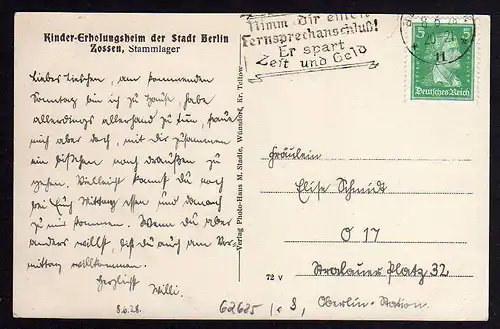 Kinder-Erholungsheim der Stadt Berlin
Zossen, Stammlager
Liebes Lieschen, am kommenden
Sonntag bin ich zu Hause, habe
allerdings allerhand zu tun, freue
mich aber doch, mit dir zusammen
ein bißchen nach draußen zu
gehen. Vielleicht kannst du noch
bei Euch Mittag essen und danach
zu mir kommen. Wenn du aber
anders willst, bist du auch am Vor-
mittag willkommen.
Herzlichst
Willi.
8.6.28.
Verlag Photo-Haus M. Stadie, Wünsdorf, Kr. Teltow
Nimm dir einen
Fernsprechanschluß!
Er spart
Zeit und Geld
8.6.28
20-21
11
5 5
Deutsches Reich
Fräulein
Elise Schmidt
O 17
Stralauer Platz 32
Oberlin-Station.
72 v
62625